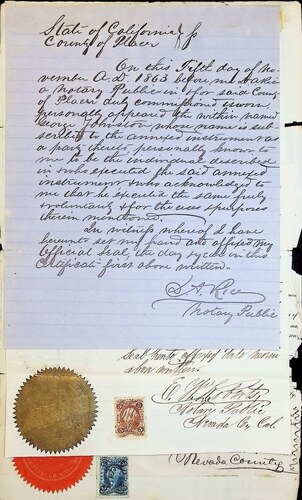 State of California
County of Placer
On this Fifth day of No-
vember A.D. 1863 before me
a Notary Public in & for said Coun
of Placer duly commissioned & sworn
Personally appeared the within name
George Johnston whose name is sub-
scribed to the annexed instrument as
a party thereto, personally known to
me to be the individual described
in & who executed the said annexed
instrument & who acknowledged to
me that he executed the same freely
voluntarily & for the uses & purposes
therein mentioned.
In witness whereof I have
hereunto set my hand and affixed my
Official Seal, the day & year in this
Certificate first above written.
Notary Public
above written
Notary Public
Nevada Co Cal
Nevada County